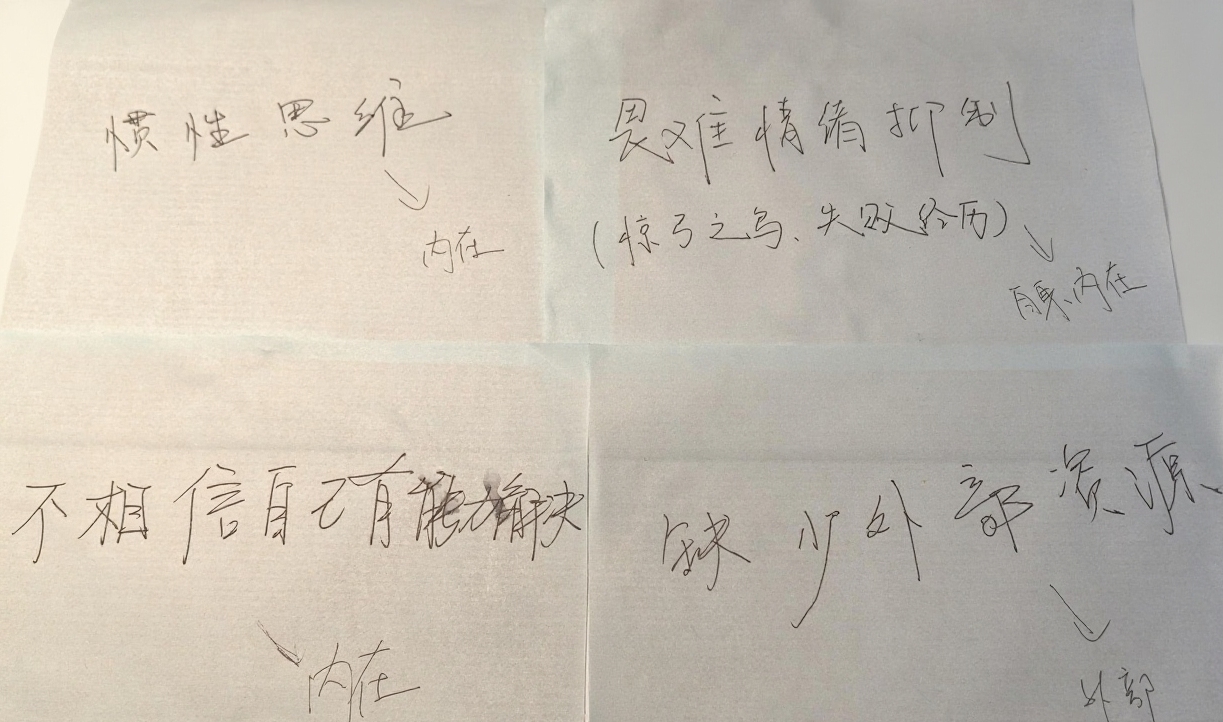 惯性思维
内在
畏难情绪抑制
(惊弓之鸟、失败经历)
内在
不相信自己有能力解决
内在
缺少外部资源、
外部